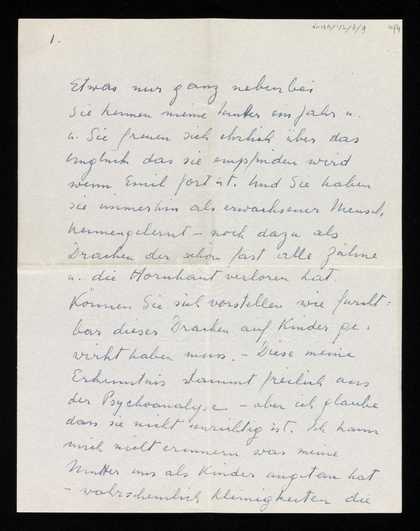 1.
Etwas nur ganz nebenbei
Sie kennen meine Mutter ein Jahr u.
u. Sie freuen sich ehrlich über das
Unglück das sie empfinden wird
wenn Emil fort ist. Und Sie haben
sie immerhin als erwachsener Mensch,
kennengelernt – noch dazu als
Drachen der schon fast alle Zähne
u. die Hornhaut verloren hat
Können Sie sich vorstellen wie furcht-
bar dieser Drachen auf Kinder ge-
wirkt haben muss. – Diese meine
Erkenntnis stammt freilich aus
der Psychoanalyse – aber ich glaube
dass sie nicht unrichtig ist. Ich kann
mich nicht erinnern was meine
Mutter uns als Kinder angetan hat
– wahrscheinlich Kleinigkeiten die